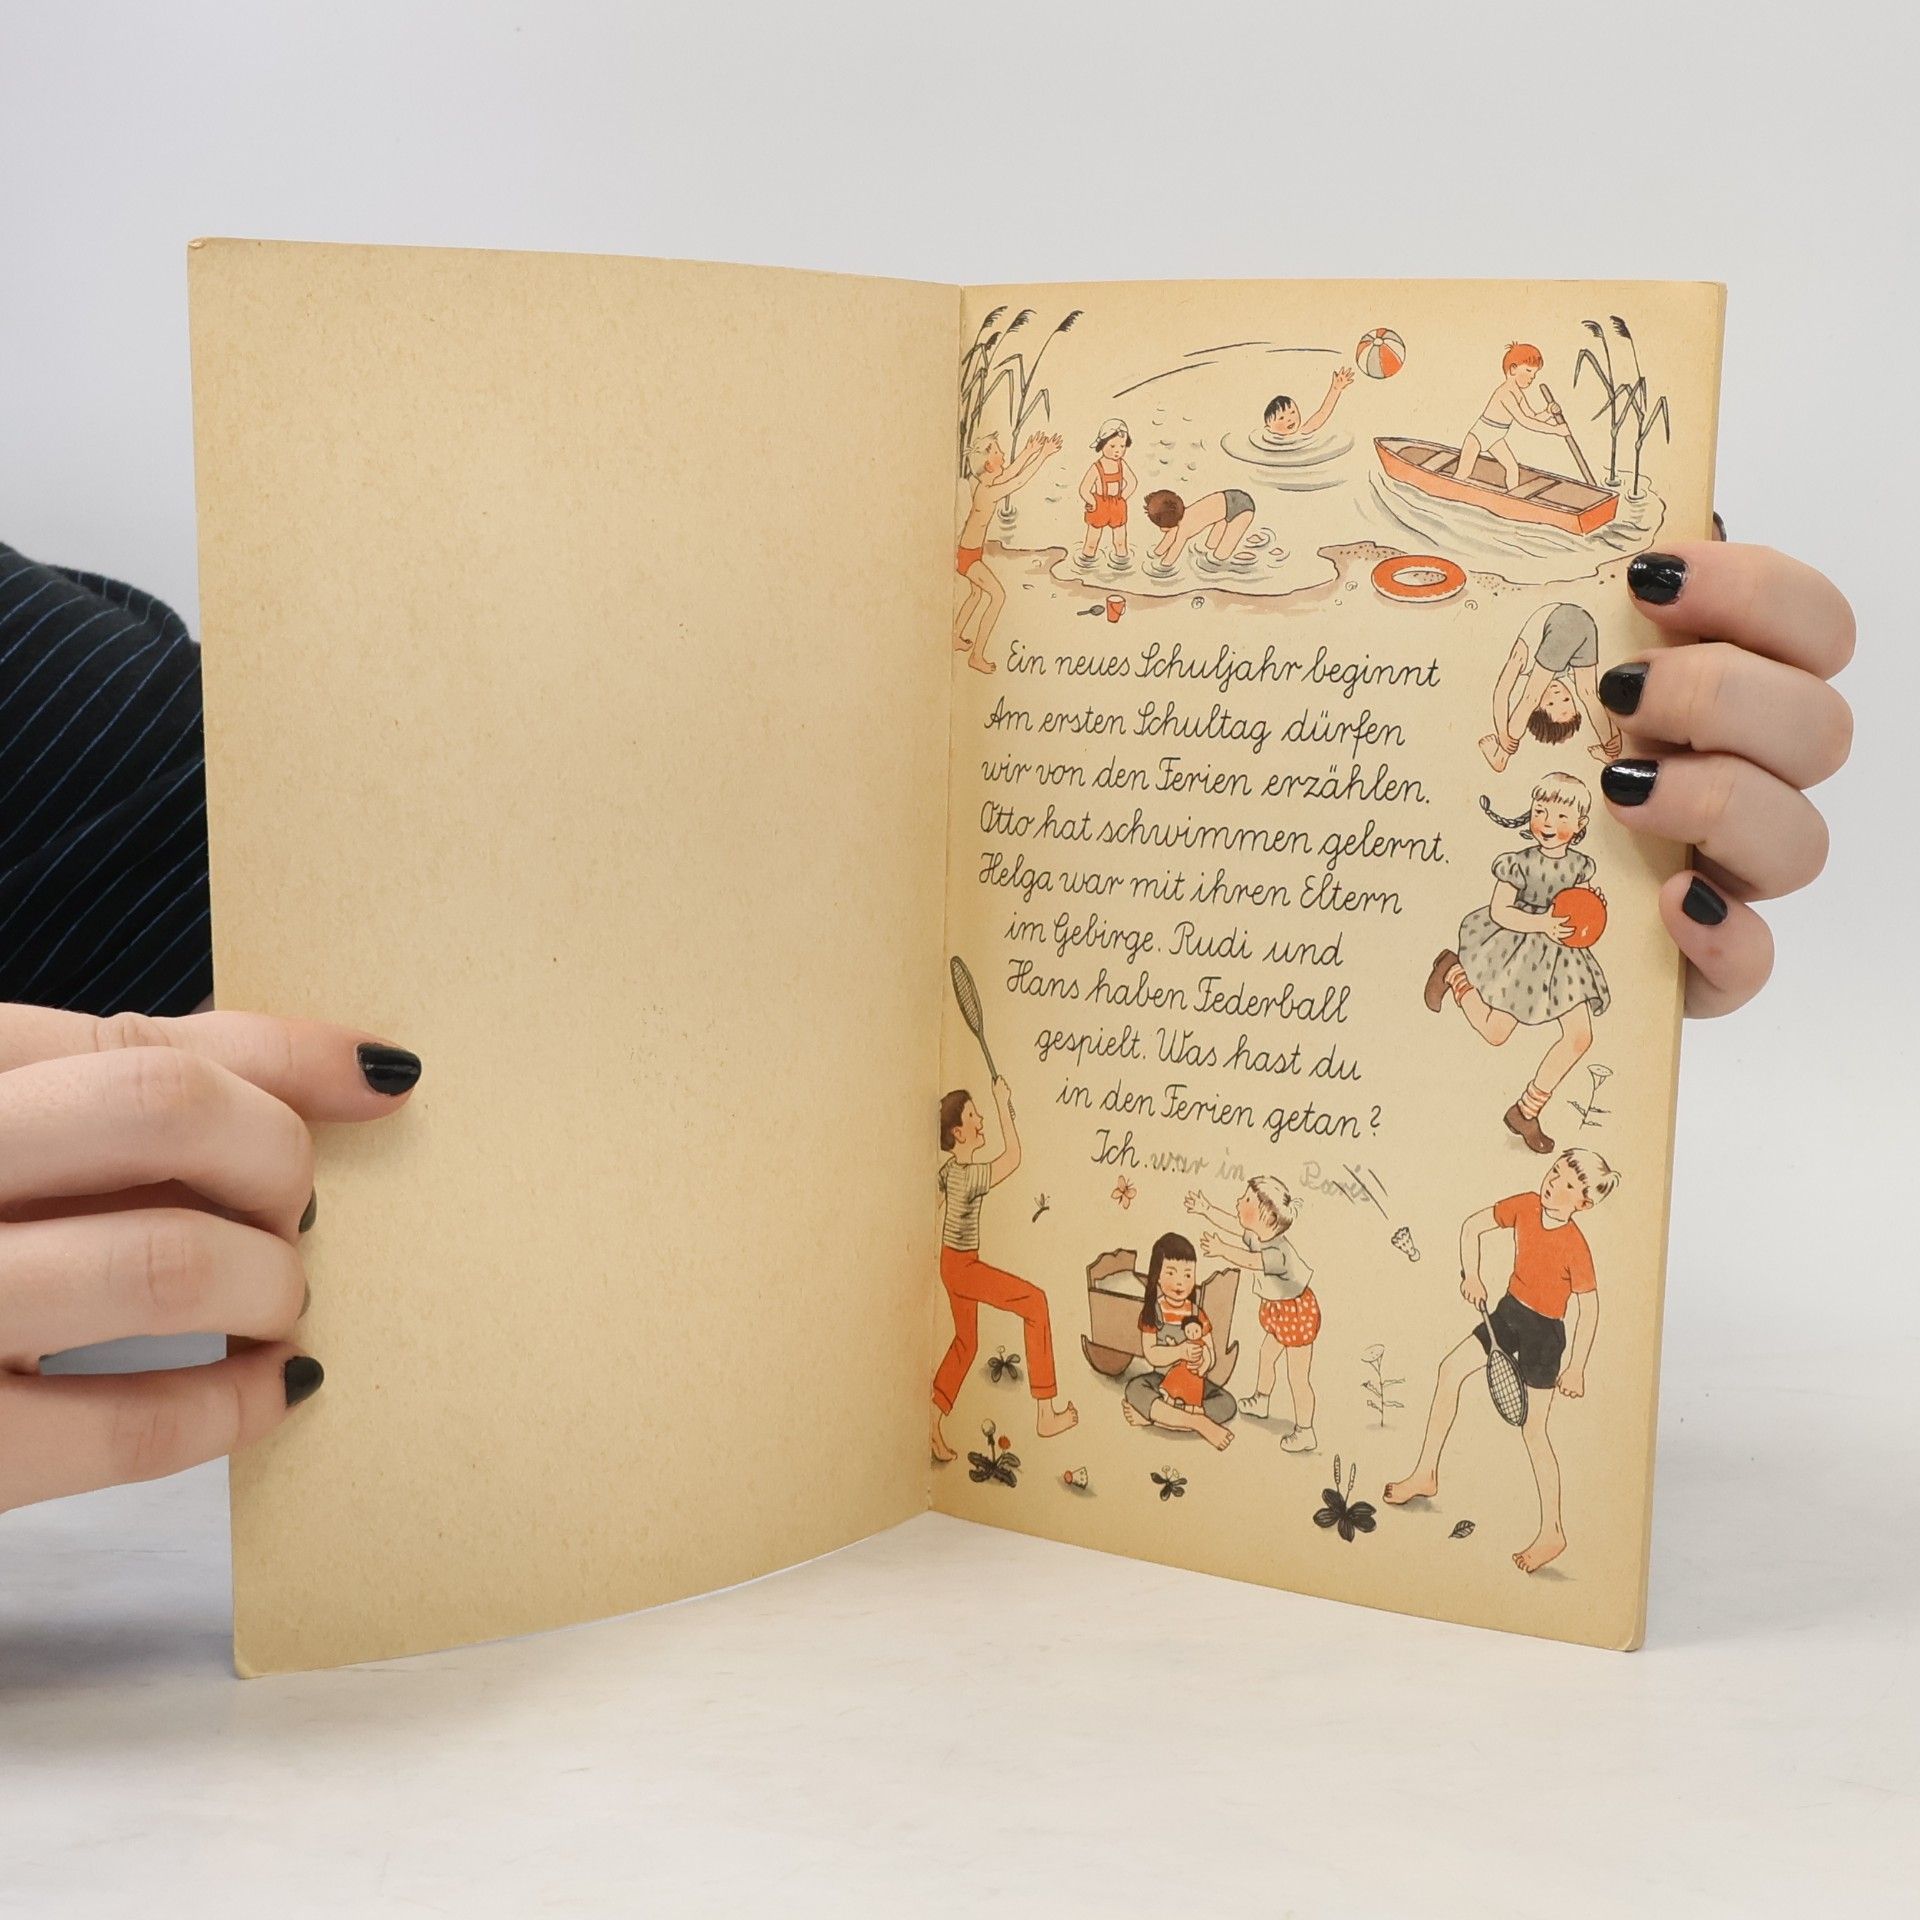 Ein neues Schuljahr beginnt
Am ersten Schultag dürfen
wir von den Ferien erzählen.
Otto hat schwimmen gelernt.
Helga war mit ihren Eltern
im Gebirge. Rudi und
Hans haben Federball
gespielt. Was hast du
in den Ferien getan?
Ich war in Paris